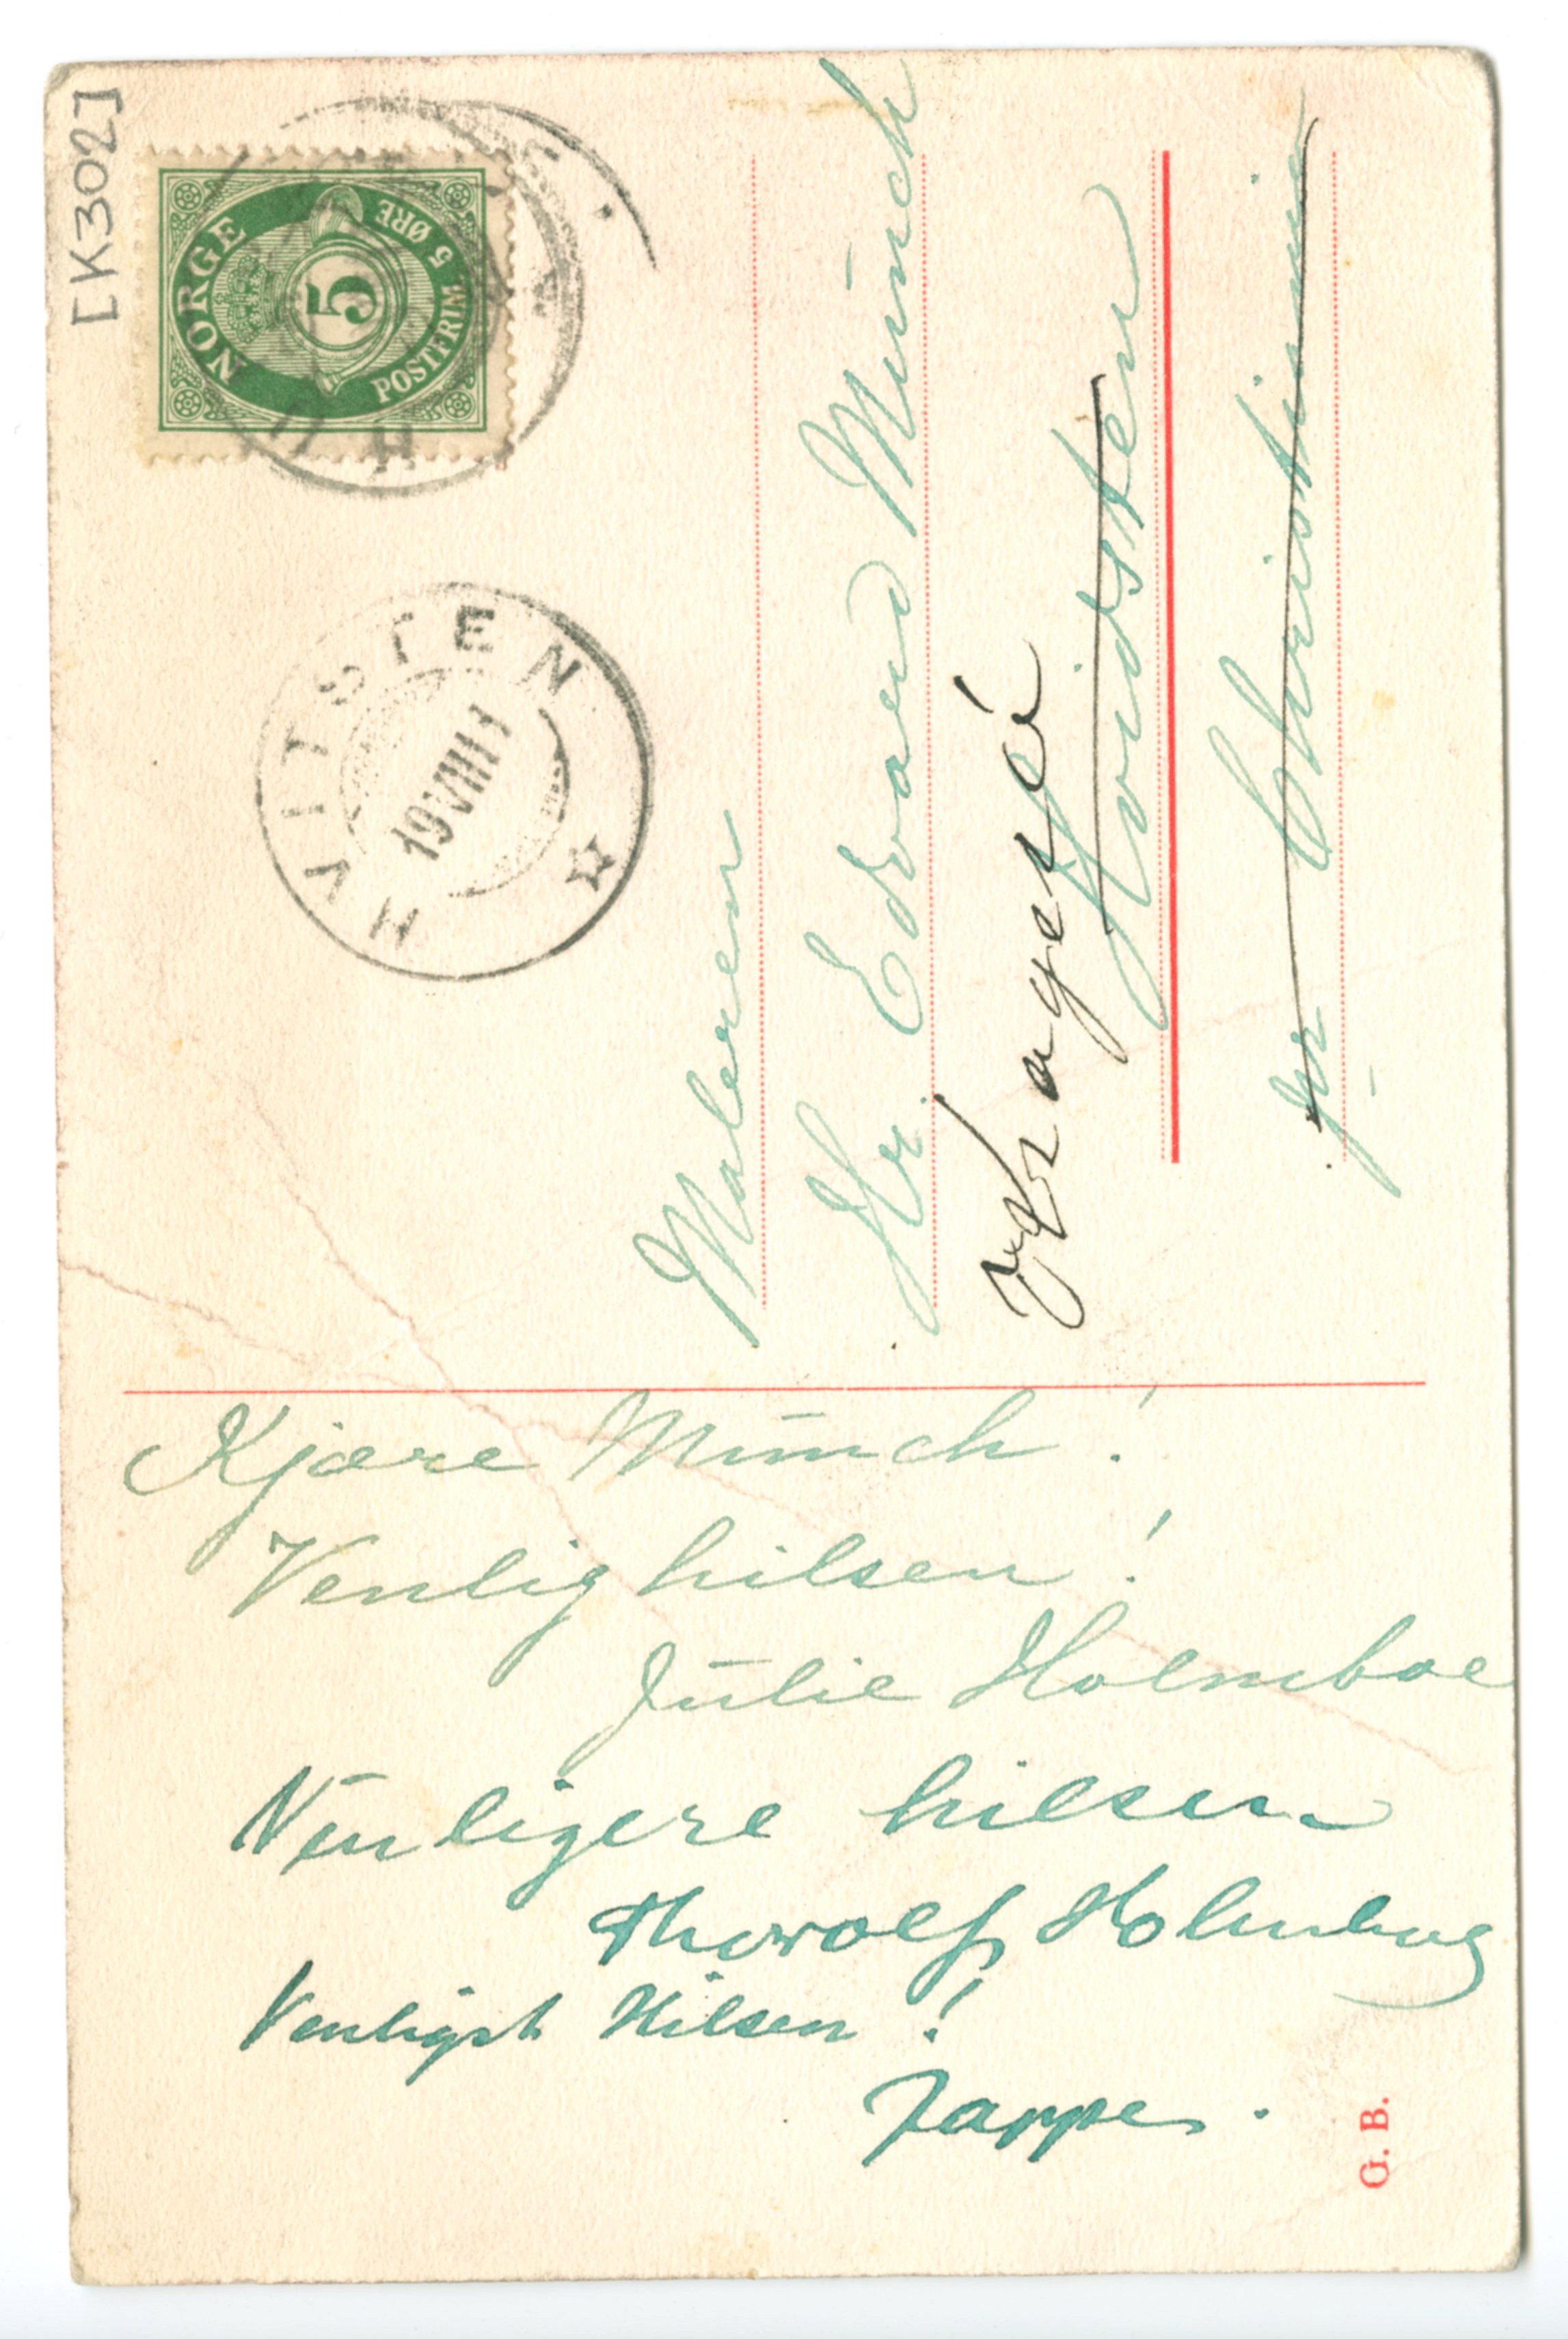 [K302]
NORGE
5
POSTFRIM. 5 ØRE
HVITSTEN
19 VIII 11
Maleren
Hr. Edvard Münch
Kragerø
Hvidsten
pr Christiania
Kjære Münch!
Venlig hilsen!
Julie Holmboe
Venligere hilsen
Thorolf Holmboe
Venligst Hilsen!
Jappe.
G. B.